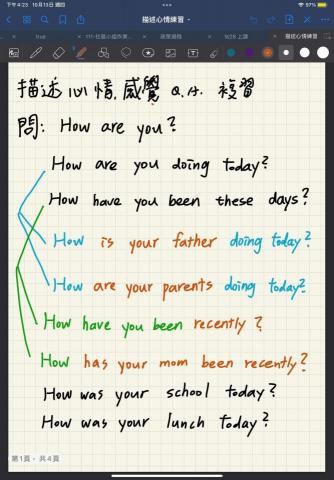 下午4:23 10月13日 週四
描述心情練習
true
政策過程
9/28 上課
描述心情練習
描述心情,感覺 Q.A. 複習
問: How are you?
How are you doing today?
How have you been these days?
How is your father doing today?
How are your parents doing today?
How have you been recently?
How has your mom been recently?
How was your school today?
How was your lunch today?
第1頁,共4頁